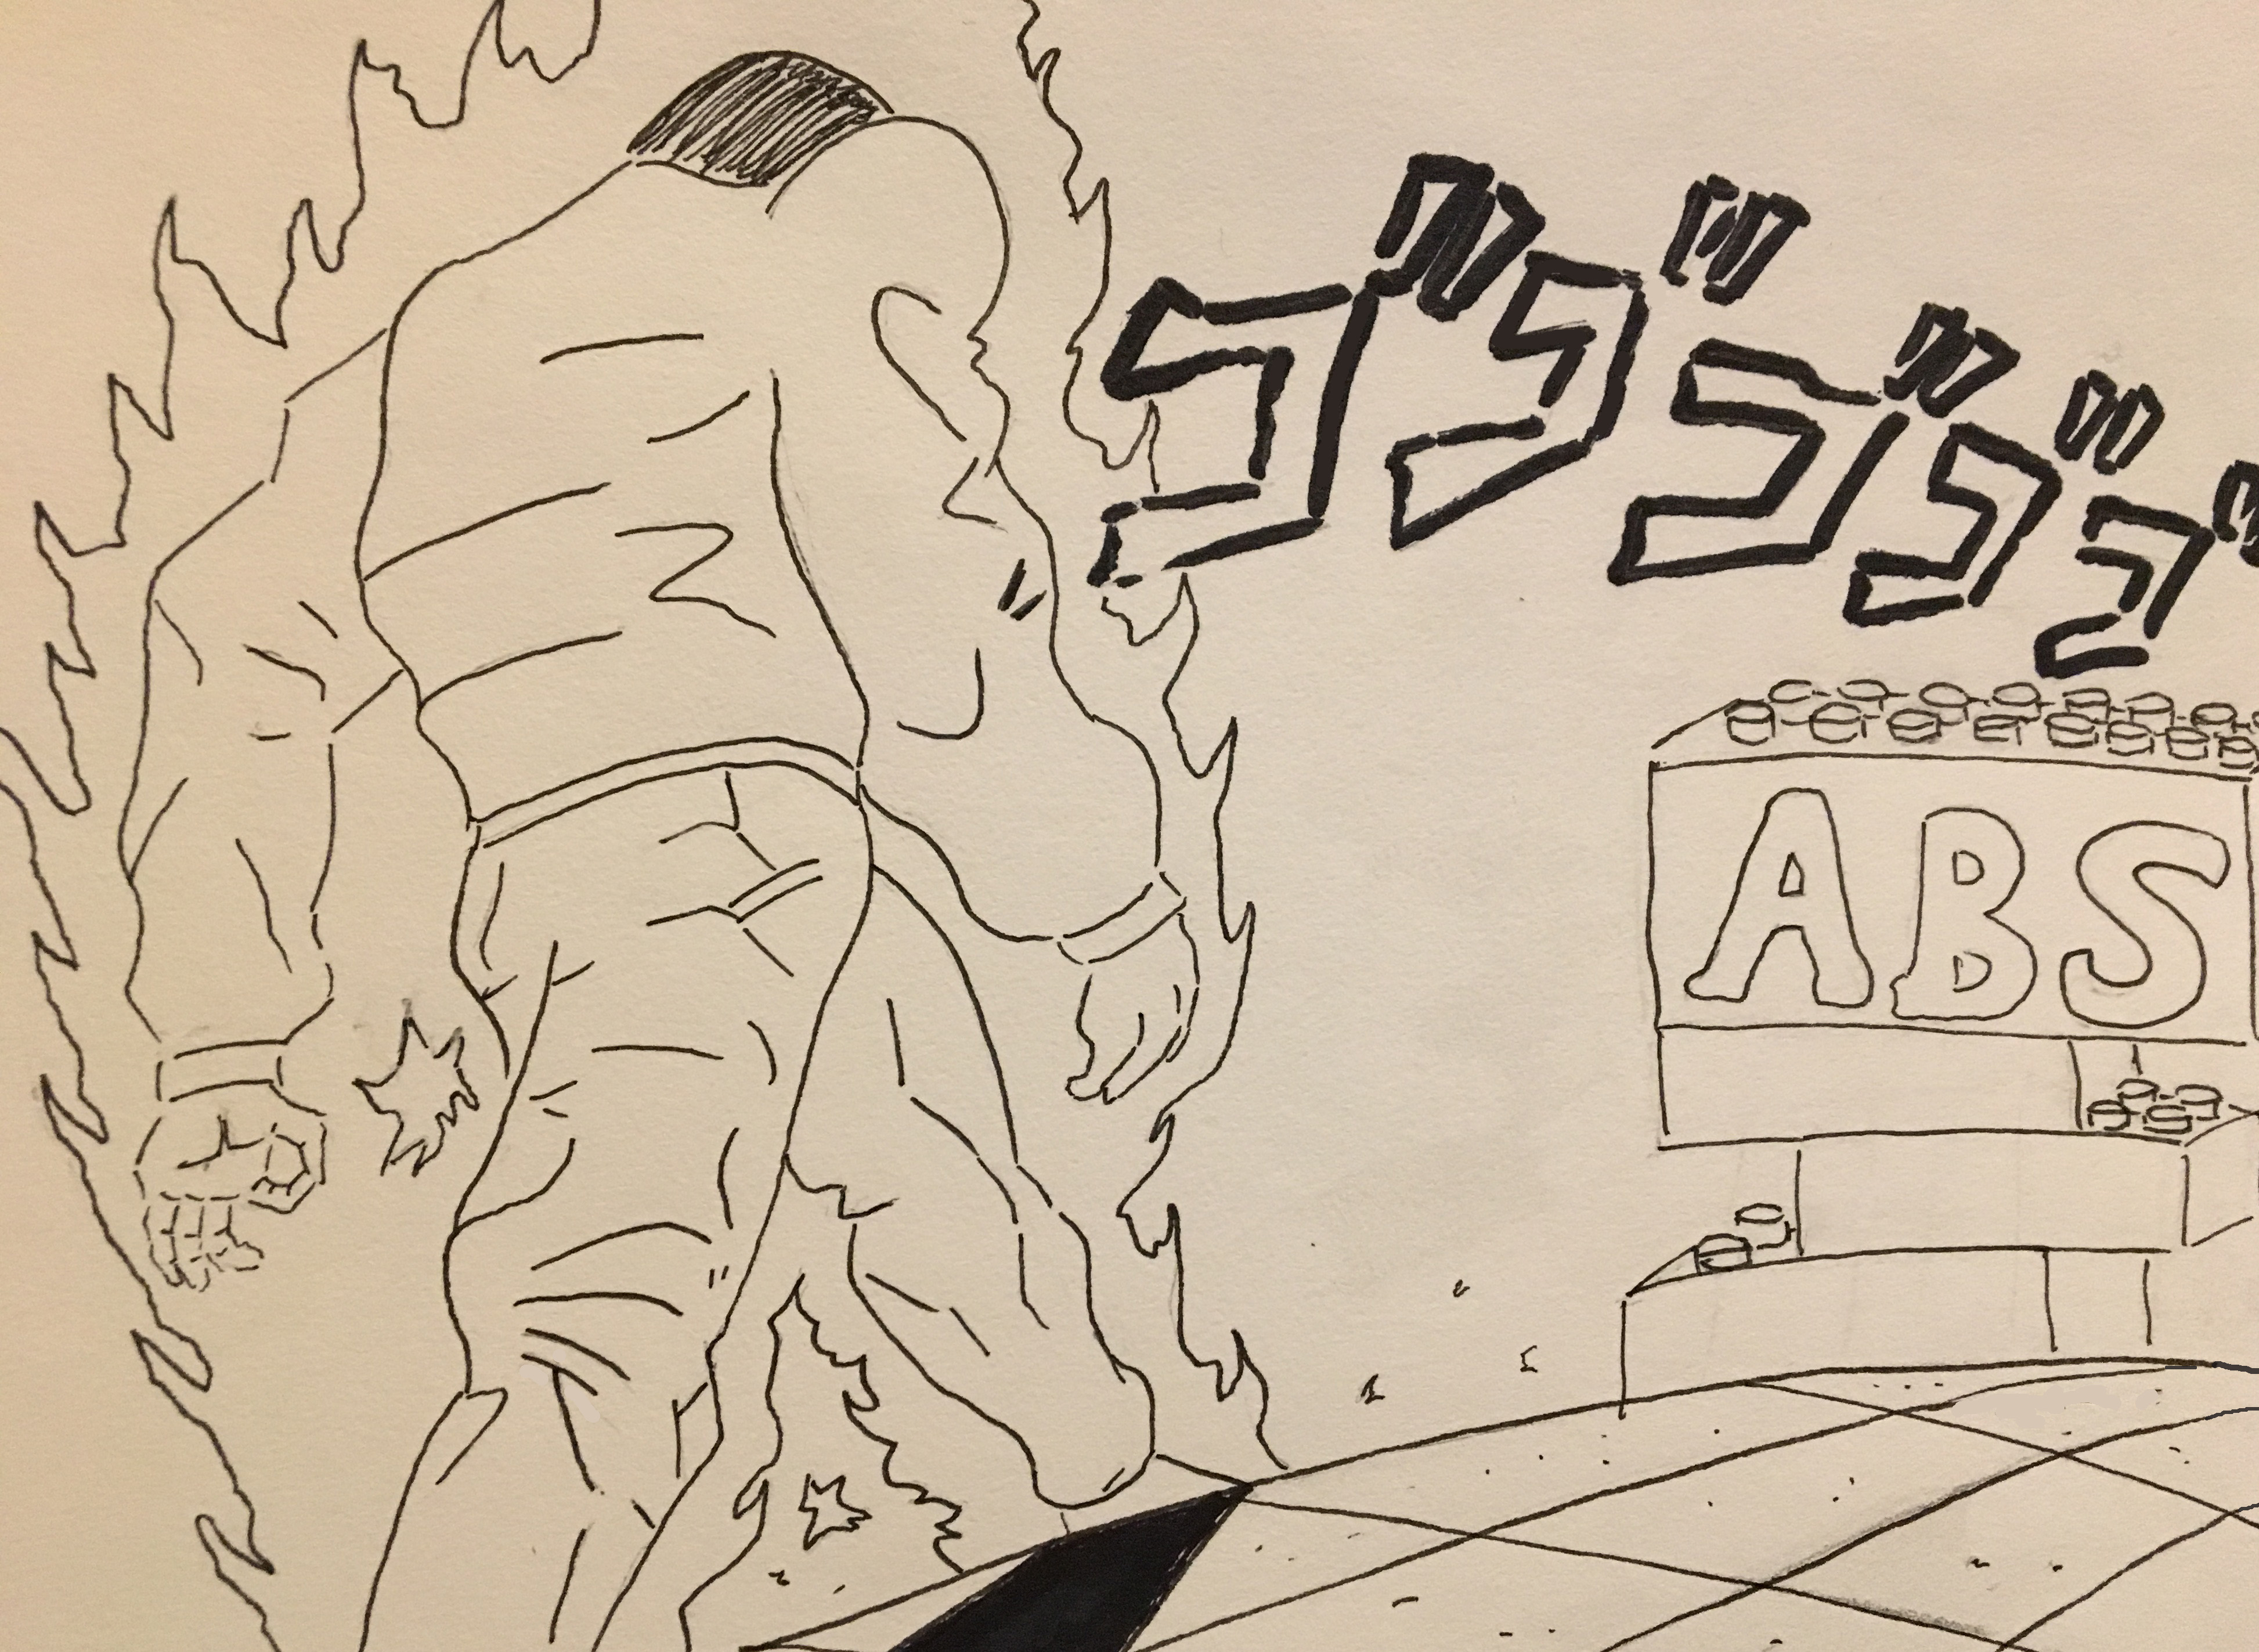 ゴゴゴゴゴ
ABS